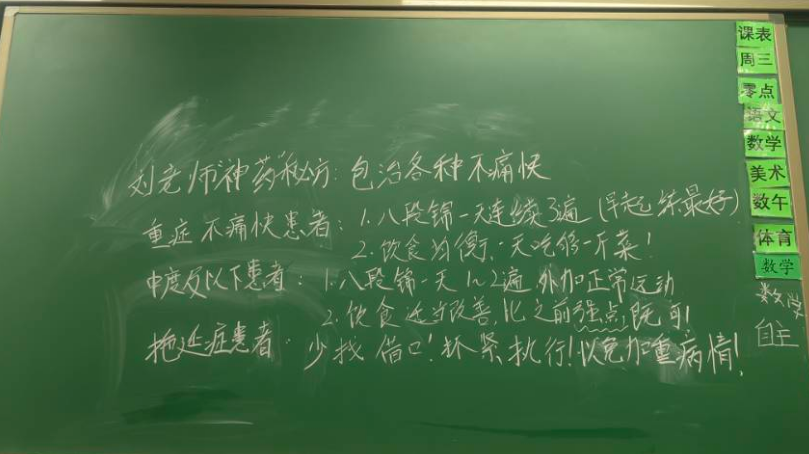 刘老师"神药"秘方:包治各种不痛快
重症不痛快患者:1.八段锦一天连续3遍(早起练最好)
2.饮食均衡,一天吃够一斤菜!
中度及以下患者:1.八段锦一天1~2遍 外加正常运动
2.饮食适当改善 比之前强点既可
拖延症患者:少找借口!抓紧执行!以免加重病情!
课表
周三
零点
语文
数学
美术
数午
体育
数学
数学
自主